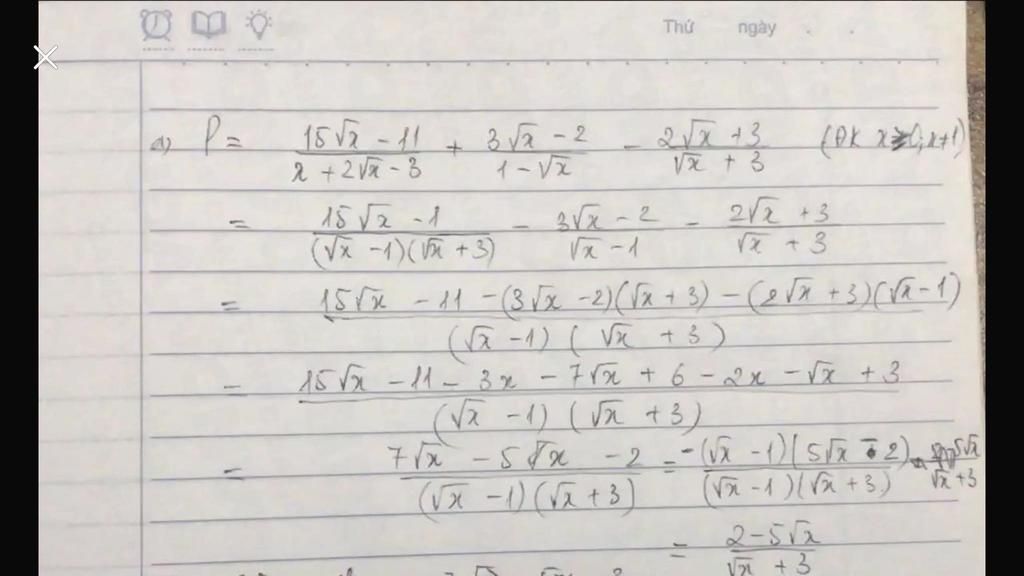 Thứ ngày . .
a) P = (15√x - 11)/(x + 2√x - 3) + (3√x - 2)/(1 - √x) - (2√x + 3)/(√x + 3) (ĐK x ≥ 0, x ≠ 1)
= (15√x - 1)/((√x - 1)(√x + 3)) - (3√x - 2)/(√x - 1) - (2√x + 3)/(√x + 3)
= (15√x - 11 - (3√x - 2)(√x + 3) - (2√x + 3)(√x - 1))/((√x - 1)(√x + 3))
= (15√x - 11 - 3x - 7√x + 6 - 2x - √x + 3)/((√x - 1)(√x + 3))
= (7√x - 5√x - 2)/((√x - 1)(√x + 3)) = (-(√x - 1)(5√x - 2))/((√x - 1)(√x + 3))
= (2 - 5√x)/(√x + 3)